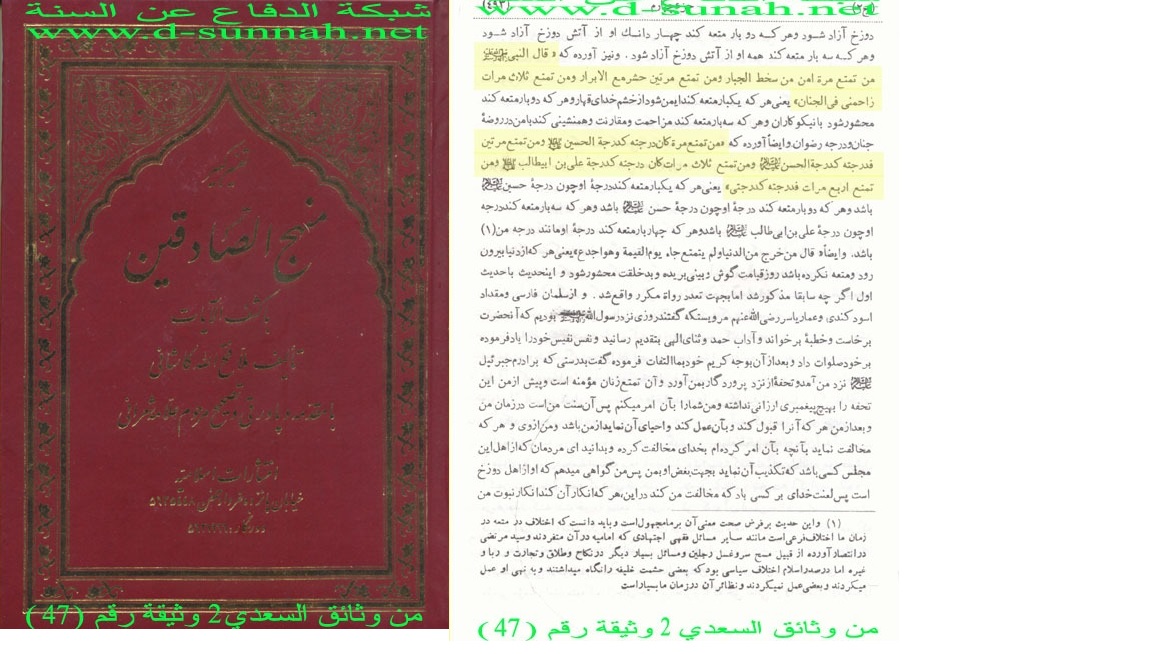 شبكة الدفاع عن السنة
www.d-sunnah.net
تفسير
منهج الصادقين
با كشف الآيات
تأليف ملا فتح الله كاشانى
انتشارات اسلاميه
من وثائق السعدي 2 وثيقة رقم ( 47 )
www.d-sunnah.net
(٤٩٣)
دوزخ آزاد شود وهر كه دو بار متعه كند چهار دانك او از آتش دوزخ آزاد شود
وهر كه سه بار متعه كند همه او از آتش دوزخ آزاد شود . ونيز آورده كه « قال النبي ﷺ
من تمتع مرة امن من سخط الجبار ومن تمتع مرتين حشر مع الابرار ومن تمتع ثلاث مرات
زاحمنى فى الجنان» يعنى هر كه يكبار متعه كند ايمن شود از خشم خداى قهار وهر كه دو بار متعه كند
محشور شود بانيكو كاران وهر كه سه بار متعه كند مزاحمت ومقارنت وهمنشينى كند بامن در روضهٔ
جنان ودرجه رضوان وايضاً آورده كه «من تمتع مرة كان درجته كدرجة الحسين عليه السلام ومن تمتع مرتين
فدرجته كدرجة الحسن عليه السلام ومن تمتع ثلاث مرات كان درجته كدرجة على بن ابيطالب عليه السلام ومن
تمتع اربع مرات فدرجته كدرجتى» يعنى هر كه يكبار متعه كند درجهٔ او چون درجهٔ حسين عليه السلام
باشد وهر كه دو بار متعه كند درجهٔ او چون درجهٔ حسن عليه السلام باشد وهر كه سه بار متعه كند درجه
او چون درجهٔ على بن ابى طالب عليه السلام باشد وهر كه چهار بار متعه كند درجهٔ او مانند درجه من (١)
باشد. وايضاً« قال من خرج من الدنيا ولم يتمتع جاء يوم القيمة وهو اجدع» يعنى هر كه از دنيا بيرون
رود ومتعه نكرده باشد روز قيامت گوش و بينى بريده و بد خلقت محشور شود و اين حديث با حديث
اول اگر چه سابقا مذكور شد اما بجهت تعدد رواة مكرر واقع شد . و از سلمان فارسى ومقداد
اسود كندى وعمار ياسر رضى الله عنهم مرويستكه گفتند روزى نزد رسول الله ﷺ بوديم كه آنحضرت
برخاست وخطبهٔ برخواند وآداب حمد وثناى الهى بتقديم رسانيد ونفس نفيس خود را ياد فرموده
برخود صلوات داد وبعد از آن بوجه كريم خود بما التفات فرموده گفت بدرستى كه برادرم جبرئيل
عليه السلام نزد من آمد وتحفهٔ از نزد پروردگار بمن آورد وآن تمتع زنان مؤمنه است وپيش از من اين
تحفه را بهيچ پيغمبرى ارزانى نداشته ومن شما را بآن امر ميكنم پس آن سنت من است در زمان من
وبعد از من هر كه آنرا قبول كند وبآن عمل كند واحياى آن نمايد از من باشد ومن از وى و هر كه
مخالفت نمايد بآنچه بآن امر كرده ام بخداى مخالفت كرده وبدانيد اى مردمان كه از اهل اين
مجلس كسى باشد كه تكذيب آن نمايد بجهت بغض او بمن پس من گواهى ميدهم كه او از اهل دوزخ
است پس لعنت خداى بر كسى باد كه مخالفت من كند در اين، هر كه انكار آن كند انكار نبوت من
(١) واين حديث بر فرض صحت معنى آن بر ما مجهول است و بايد دانست كه اختلاف در متعه در
زمان ما اختلاف فرعى است مانند ساير مسائل فقهى اجتهادى كه اماميه در آن منفردند وسيد مرتضى
در انتصار آورده از قبيل مسح سر وغسل رجلين ومسائل بسيار ديگر در نكاح وطلاق وتجارت و ربا و
غيره اما در صدر اسلام اختلاف سياسى بود كه بعضى حشمت خليفه را نگاه ميداشتند و به نهى او عمل
ميكردند وبعضى عمل نميكردند و نظائر آن در زمان ما بسيار است
من وثائق السعدي 2 وثيقة رقم ( 47 )